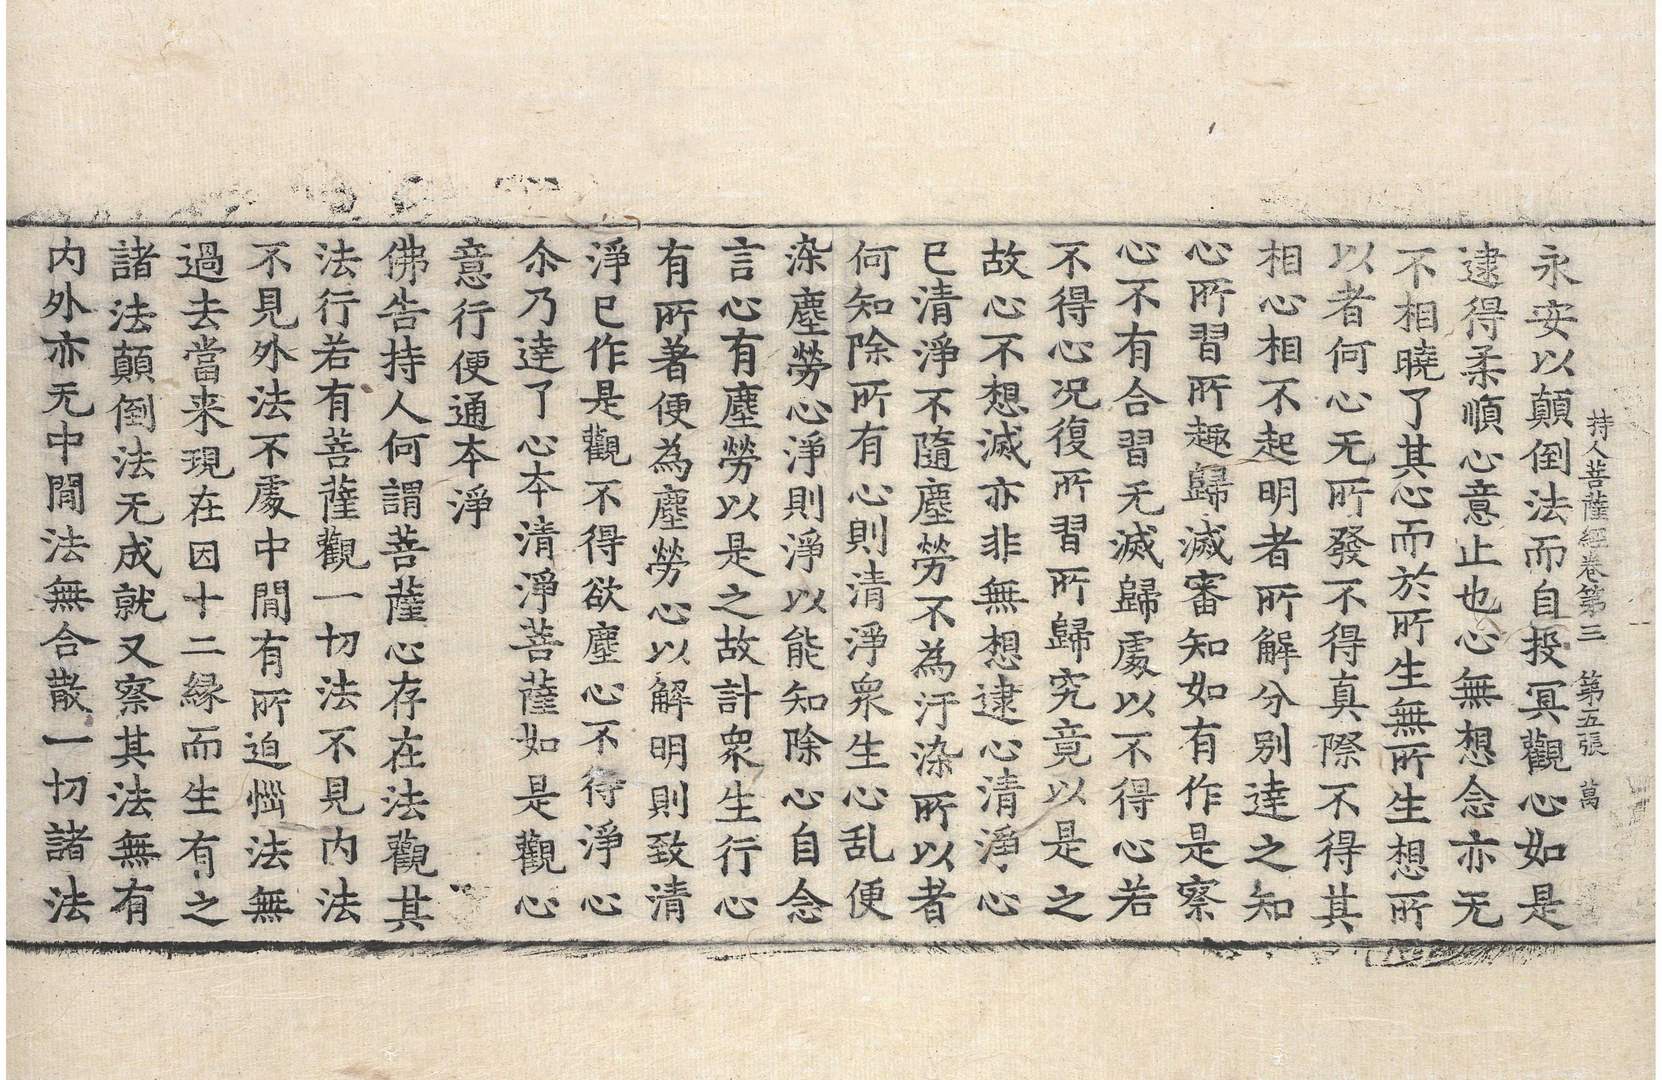 持人菩薩經卷第三 第五張 萬
永安以顛倒法而自投冥觀心如是
逮得柔順心意止也心無想念亦无
不相曉了其心而於所生無所生想所
以者何心无所發不得真際不得其
相心相不起明者所解分别達之知
心所習所趣歸滅審知如有作是察
心不有合習无滅歸處以不得心若
不得心况復所習所歸究竟以是之
故心不想滅亦非無想逮心清淨心
已清淨不隨塵勞不為汙染所以者
何知除所有心則清淨衆生心乱便
染塵勞心淨則淨以能知除心自念
言心有塵勞以是之故計衆生行心
有所著便為塵勞心以解明則致清
淨已作是觀不得欲塵心不得淨心
尒乃達了心本清淨菩薩如是觀心
意行便通本淨
佛告持人何謂菩薩心存在法觀其
法行若有菩薩觀一切法不見内法
不見外法不處中間有所迫惱法無
過去當来現在因十二緣而生有之
諸法顛倒法无成就又察其法無有
内外亦无中間法無合散一切諸法